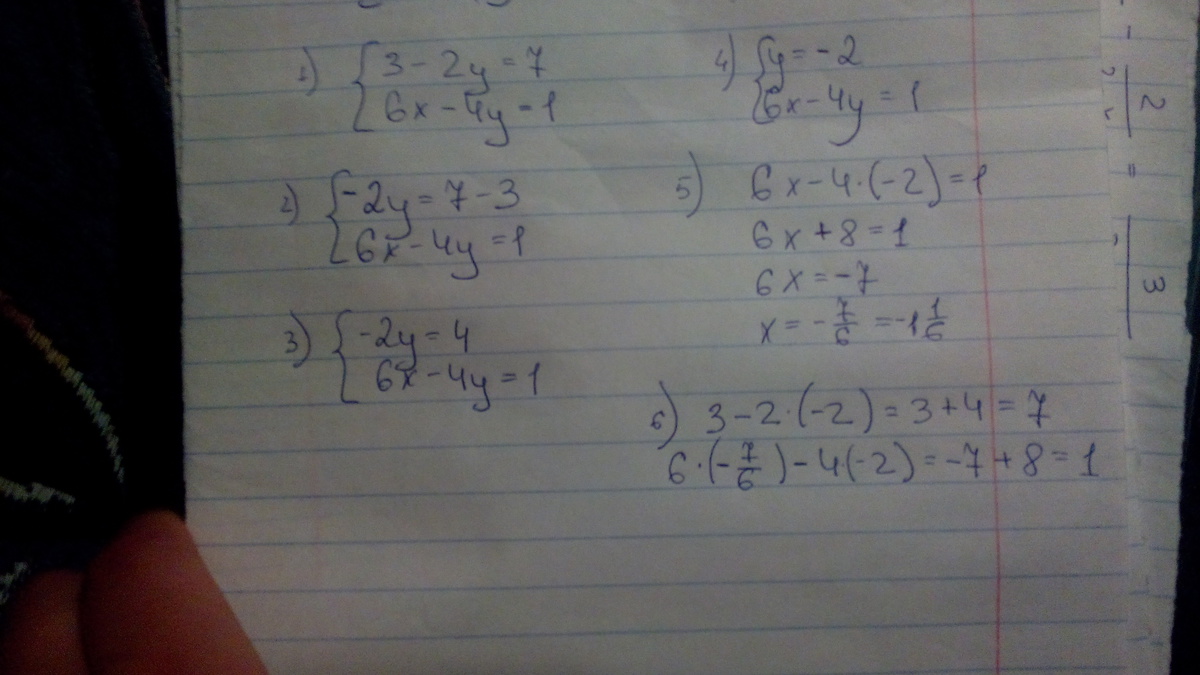 1) { 3 - 2y = 7
6x - 4y = 1
2) { -2y = 7 - 3
6x - 4y = 1
3) { -2y = 4
6x - 4y = 1
4) { y = -2
6x - 4y = 1
5) 6x - 4·(-2) = 1
6x + 8 = 1
6x = -7
x = -7/6 = -1 1/6
6) 3 - 2·(-2) = 3 + 4 = 7
6·(-7/6) - 4(-2) = -7 + 8 = 1
2
=
3